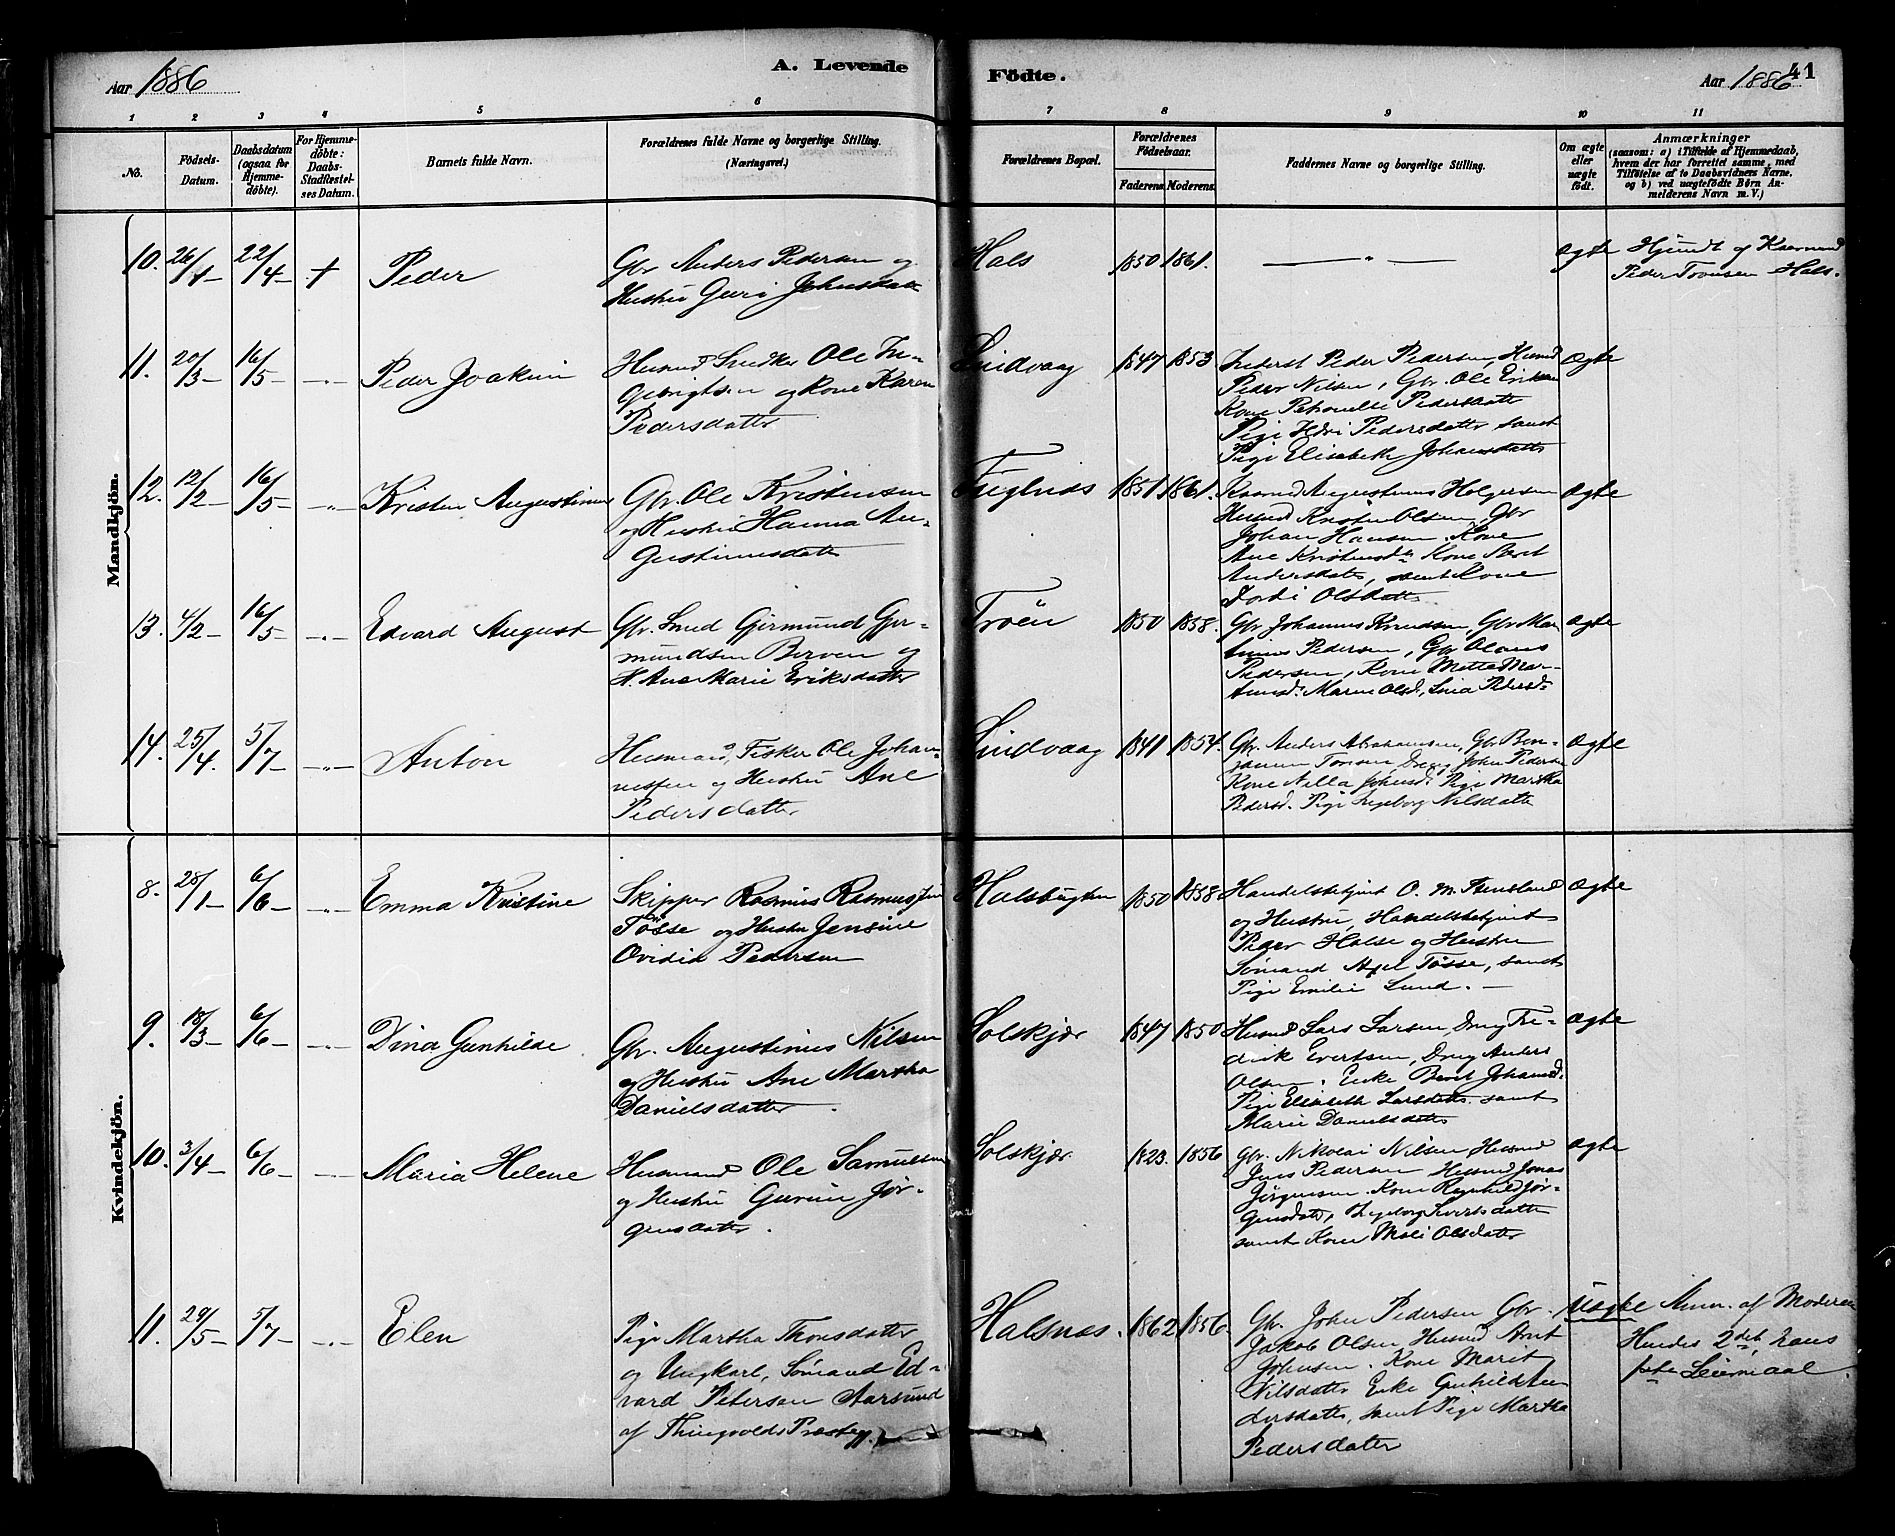 Aar 1886
A. Levende
Födte.
Aar 1886
41
1 2 3 4 5 6 7 8 9 10 11
No.
Födsels-
Datum.
Daabsdatum
(ogsaa for
Hjemme-
döbte).
For Hjemme-
döbte:
Daabs-
Stadfæstel-
ses Datum.
Barnets fulde Navn.
Forældrenes fulde Navne og borgerlige Stilling.
(Næringsvei.)
Forældrenes Bopæl.
Forældrenes
Födselsaar.
Faderens. Moderens.
Faddernes Navne og borgerlige Stilling.
Om ægte
eller
uægte
födt.
Anmærkninger
(saasom: a) i Tilfælde af Hjemmedaab,
hvem der har forrettet samme, med
Tilföielse af to Daabsvidners Navne,
og b) ved uægtefödte Börn An-
melderens Navn m. V.)
Mandkjön.
10. 26/1 22/4 + Peder
Gbr Anders Pedersen og
Hustru Guri Johnsdatter
Hals 1850 1861. — " — ægte
Peder Tronsen Hals.
11. 20/3 16/5 Peder Joakim
Husmd Snedker Ole In-
gebrigtsen og Kone Karen
Pedersdatter
1847 1853
Inderst Peder Pedersen, Husmd
Peder Nilsen, Gbr. Ole Eriksen
Kone Petronelle Pedersdatter
Pige Pedersdatter samt
Pige Elisabeth Johansdatter
ægte
12. 12/2 16/5 Kristen Augustinus
Gbr. Ole Kristensen
og Hustru Hanna Au-
gustinusdatter
1851 1861.
Augustinus Holgersen
Husmd Kristen Olsen, Gbr
Johan Hansen. Kone
Ane Kristensd. Kone Beret
Andersdatter, samt Kone
Olsdatter
ægte
13. 4/2 16/5 Edvard August
Gbr. Smed Germund Ger-
mundsen Berven og
H. Ane Marie Eriksdatter
Tröen 1850 1858.
Gbr Johannes Knudsen, Gbr Mar-
tinus Pedersen, Gbr Olaus
Pedersen, Kone Mette Mar-
tinusd. Marie Olsd, Pedersd.
ægte
14. 25/4 5/7 Anton
Husmand, Fisker Ole Johan-
nessen og Hustru Ane
Pedersdatter
1841 1854.
Gbr. Anders Abrahamsen, Gbr Ben-
jamin Tönsen Dreng John Pedersen
Kone Nilla Johnsd. Pige Martha
Pedersd. Pige Ingeborg Nilsdatter
ægte
Kvindekjön.
8. 28/1 6/6 Emma Kristine
Skipper Rasmus Rasmussen
Tösse og Hustru Jensine
Ovidia Pedersen
Halsbugten 1850 1858
Handelsbetjent O. M. Stensland
og Hustru, Handelsbetjent
Peder Halse og Hustru
Sömand Axel Tösse, samt
Pige Emilie Lund. —
ægte
9. 18/3 6/6 Dina Gunhilde
Gbr. Augustinus Nilsen
og Hustru Ane Martha
Danielsdatter.
Solskjær 1847 1850
Husmd Lars Larsen, Dreng Fre-
drik Evertsen, Dreng Anders
Olsen. Enke Beret Johansd.
Pige Elisabeth Larsdatter samt
Marie Danielsdatter
ægte
10. 3/4 6/6 Maria Helene
Husmand Ole Samuelsen
og Hustru Gurine Jör-
gensdatter.
Solskjær 1823. 1856
Gbr. Nikolai Nilsen Husmd
Jens Pedersen Husmd Jonas
Jörgensen. Kone Ragnhild Jör-
gensdatter, Ingeborg Sivertsdatter
samt Kone Mali Olsdatter
ægte
11. 29/5 5/7 Elen
Pige Martha Thorsdatter
og Ungkarl, Sömand Ed-
vard Petersen Aarsund
af Thingvolds Præsteg.
Halsnæs. 1862 1856.
Gbr. John Pedersen Gbr.
Jakob Olsen Husmd Arnt
Johnsen. Kone Marit
Nilsdatter Enke Gunhild An-
dersdatter, samt Pige Martha
Pedersdatter
Uægte Anm. af Moderen
Hendes 2det, hans
1ste Leiermaal.